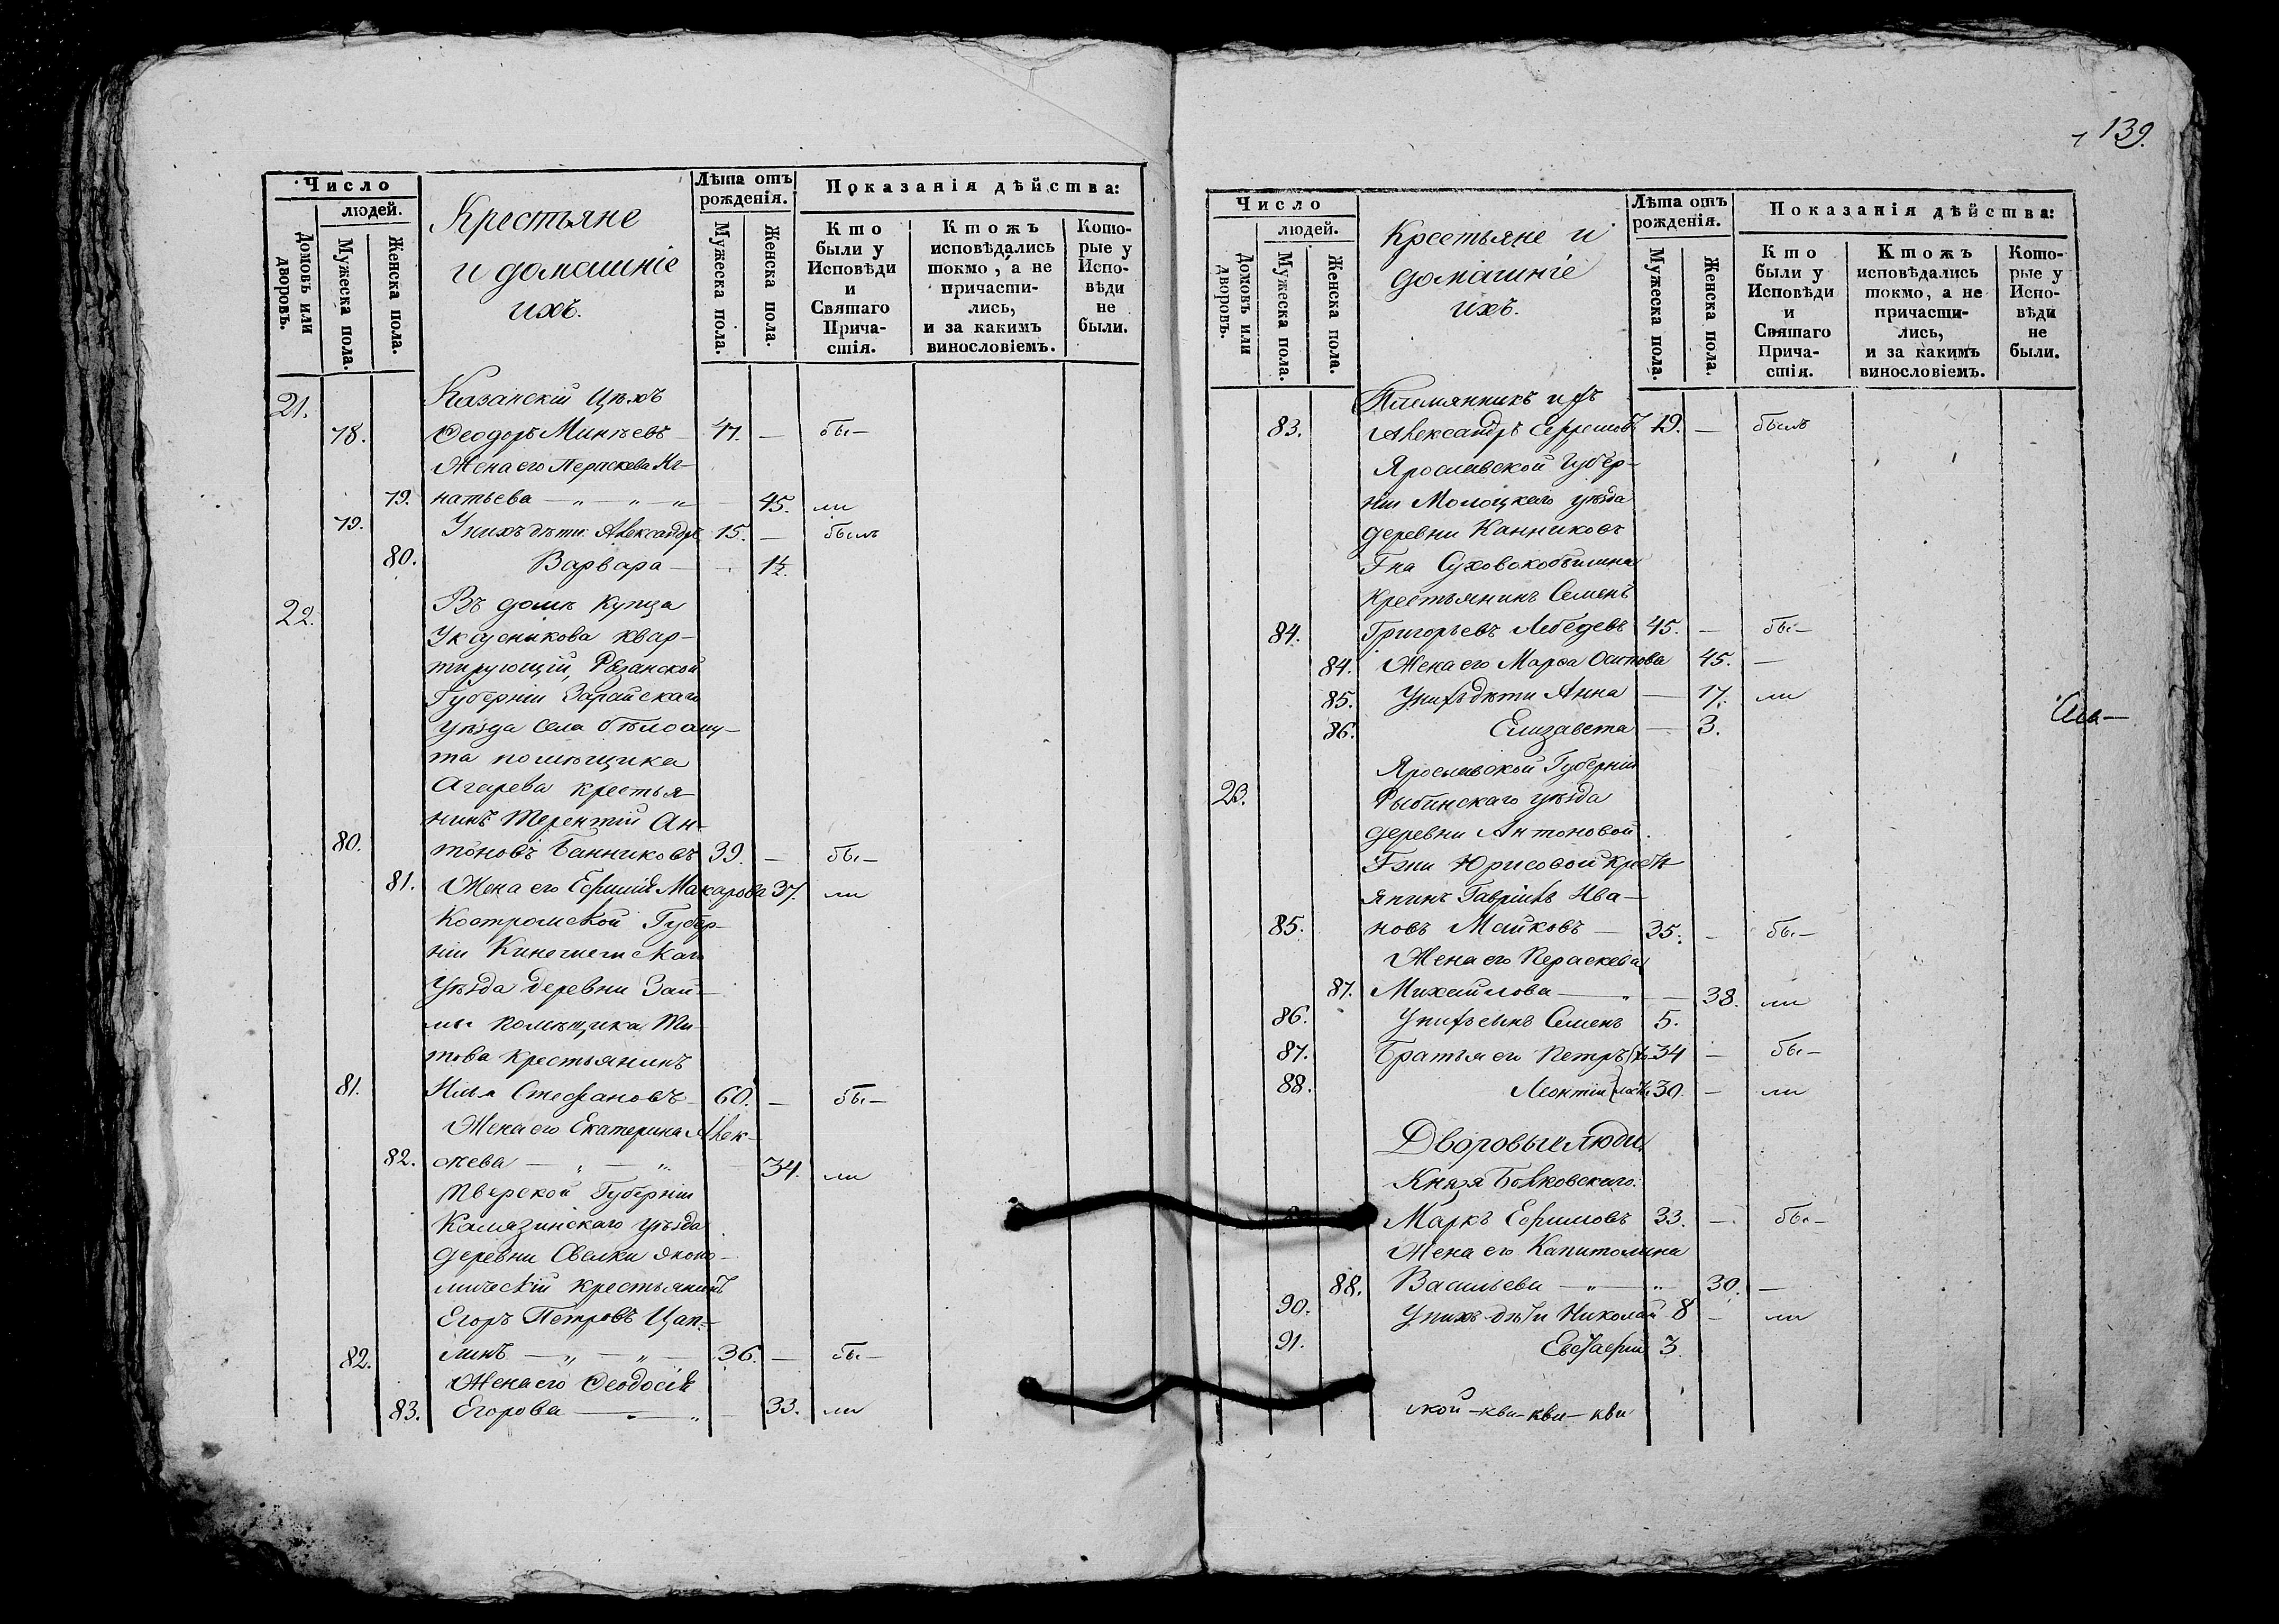 Число
людей.
Домовъ или дворовъ.
Мужеска пола.
Женска пола.
Крестьяне
и домашніе
ихъ.
Лѣта отъ
рожденія.
Мужеска пола.
Женска пола.
Показанія дѣйства:
Кто
были у
Исповѣди
и
Святаго
Прича-
стія.
Ктожъ
исповѣдались
токмо, а не
причасти-
лись,
и за какимъ
винословіемъ.
Кото-
рые у
Испо-
вѣди
не
были.
21. Казанскій Цѣхъ
78. Ѳеодоръ Минѣевъ 47. — бы—
Жена его Пераскева Иг-
79. натьева — „ — „ — „ — 45. ли
79. У нихъ дѣти: Александръ 15. — былъ
80. Варвара — 1½.
22. Въ домѣ купца
Уксусникова квар-
тирующій, Рязанской
Губерніи Зарайскаго
уѣзда села бѣлоому-
та помѣщика
Агарева крестья-
нинъ Терентій Ан-
80. тоновъ Банниковъ 39. — бы—
81. Жена его Ефимія Макарова 37. ли
Костромской Губер-
ніи Кинешемскаго
уѣзда деревни Зай-
мы помѣщика Ти-
това крестьянинъ
81. Илья Стефановъ 60. — бы—
Жена его Екатерина Алек-
82. сѣева — „ — „ — 34. ли
Тверской Губерніи
Калязинскаго уѣзда
деревни Свѣлки эконо-
мическій крестьянинъ
Егоръ Петровъ Цап-
82. линъ — „ — „ — 36. — бы—
Жена его Ѳеодосія
83. Егорова — „ — 33. ли
139.
Число
людей.
Домовъ или дворовъ.
Мужеска пола.
Женска пола.
Крестьяне и
домашніе
ихъ.
Лѣта отъ
рожденія.
Мужеска пола.
Женска пола.
Показанія дѣйства:
Кто
были у
Исповѣди
и
Святаго
Прича-
стія.
Ктожъ
исповѣдались
токмо, а не
причасти-
лись,
и за какимъ
винословіемъ.
Кото-
рые у
Испо-
вѣди
не
были.
Племянникъ ихъ
83. Александръ Ефремовъ 19. — былъ
Ярославской Губер-
ніи Мологскаго уѣзда
деревниКанниковъ
Гна Суховокобылина
крестьянинъ Семенъ
84. Григорьевъ Лебедевъ 45. — бы—
84. Жена его Марѳа Осипова 45. —
85. У нихъ дѣти Анна — 17. ли
86. Елизавета — 3.
Ярославской Губерніи
23. Рыбинскаго уѣзда
деревни Антоновой
Гжи Юрисовой Кресть-
янинъ Гавріилъ Ива-
85. новъ Майковъ — 35. — бы—
Жена его Пераскева
87. Михайлова — „ — 38. ли
86. У нихъ сынъ Семенъ 5.
87. Братья его Петръ 34 — бы—
88. Леонтій 30. — ли
Дворовые люди
Князя Болховскаго.
Маркъ Ефимовъ 33. — бы—
Жена его Капитолина
88. Васильева — „ — „ 30. —
90. У нихъ дѣти Николай 8 — ли
91. Евстафій 3.